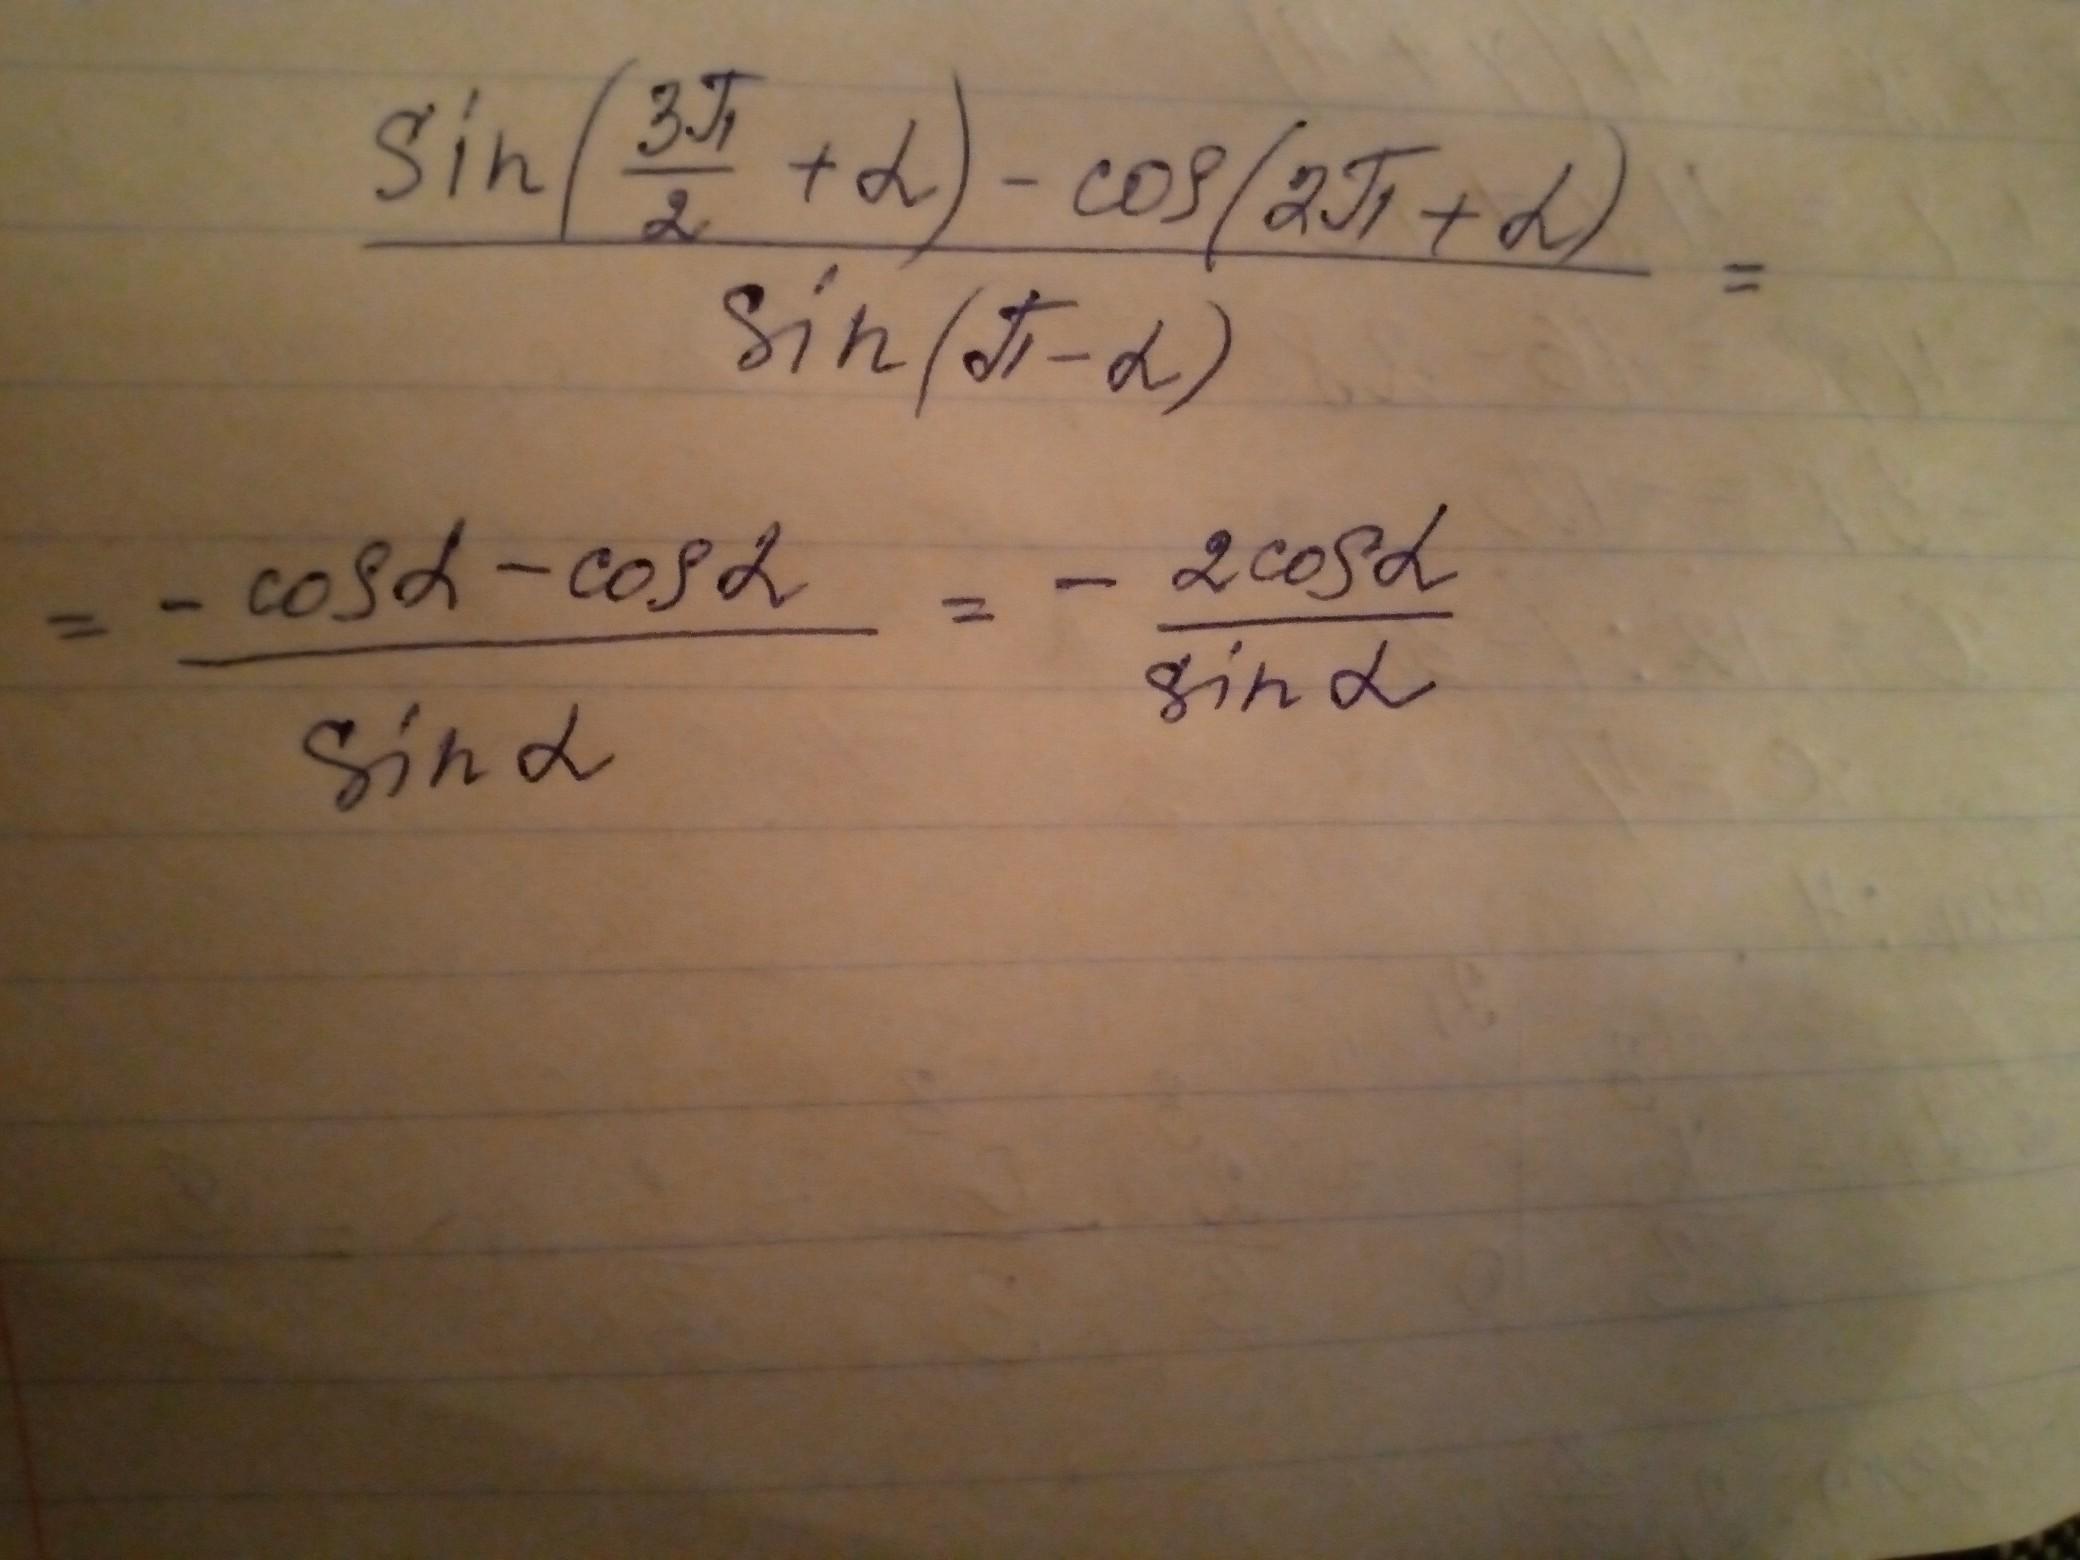 sin(3π/2 + α) - cos(2π + α) / sin(π - α) =
= - cosα - cosα / sinα = - 2cosα / sinα